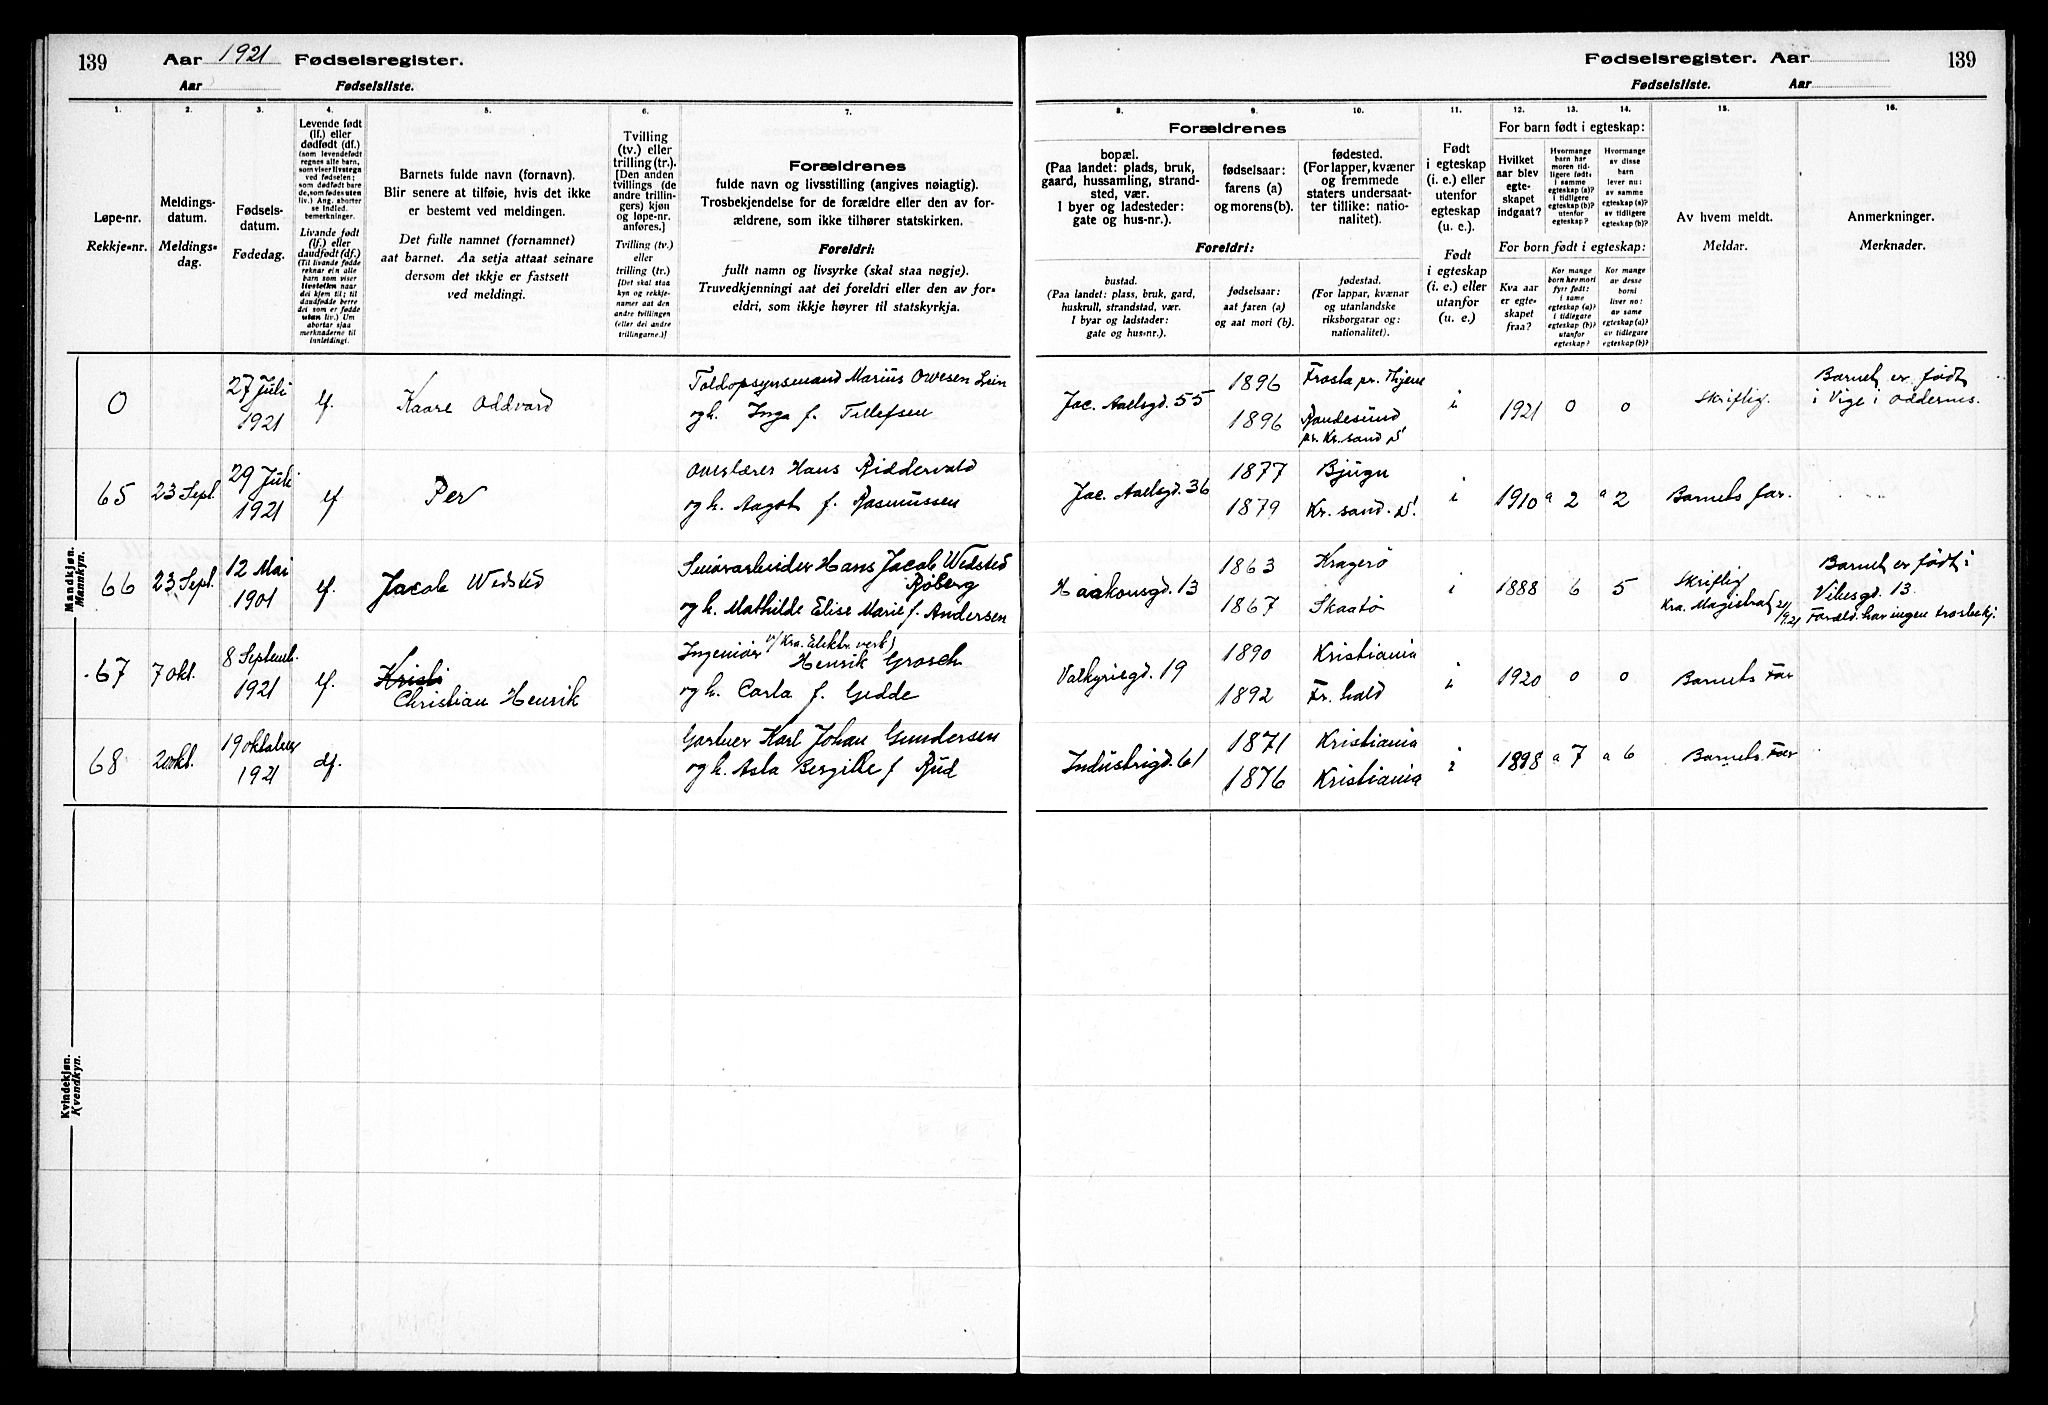 139 Aar 1921 Fødselsregister.
Aar Fødselsliste.
Fødselsregister. Aar 139
Fødselsliste. Aar
1. 2. 3. 4. 5. 6. 7.
Løpe-nr.
Rekkje-nr.
Meldings-
datum.
Meldings-
dag.
Fødsels-
datum.
Fødedag.
Levende født
(lf.) eller
dødfødt (df.)
(som levendefødt
regnes alle barn,
som viser livstegn
ved fødselen;
som dødfødt bare
de, som fødes uten
liv.) Ang. aborter
se indled.
bemerkninger.
Livande født
(lf.) eller
daudfødt (df.)
(Til livande fødde
reknar ein alle
barn som viser
livsteikn naar
dei kjem til; til
daudfødde berre
dei som er fødde
utan liv.) Um
abortar sjaa
merknaderne til
innleidingi.
Barnets fulde navn (fornavn).
Blir senere at tilføie, hvis det ikke
er bestemt ved meldingen.
Det fulle namnet (fornamnet)
aat barnet. Aa setja attaat seinare
dersom det ikkje er fastsett
ved meldingi.
Tvilling
(tv.) eller
trilling (tr.).
[Den anden
tvillings (de
andre trillin-
gers) kjøn
og løpe-nr.
anføres.]
Tvilling (tv.)
eller
trilling (tr.)
[Det skal staa
kyn og rekkje-
namer aat den
andre tvillingen
(eller dei andre
trillingarne.)]
Forældrenes
fulde navn og livsstilling (angives nøiagtig).
Trosbekjendelse for de forældre eller den av for-
ældrene, som ikke tilhører statskirken.
Foreldri:
fullt namn og livsyrke (skal staa nøgje).
Truvedkjenningi aat dei foreldri eller den av for-
eldri, som ikkje høyrer til statskyrkja.
8. 9. 10. 11. 12. 13. 14. 15. 16.
Forældrenes
bopæl.
(Paa landet: plads, bruk,
gaard, hussamling, strand-
sted, vær.
I byer og ladesteder:
gate og hus-nr.).
Foreldri:
bustad.
(Paa landet: plass, bruk, gard,
huskrull, strandstad, vær.
I byar og ladstader:
gate og hus-nr.).
fødselsaar:
farens (a)
og morens (b).
fødselsaar:
aat faren (a)
og aat mori (b).
fødested.
(For lapper, kvæner
og fremmede
staters undersaat-
ter tillike: natio-
nalitet).
fødestad.
(For lappar, kvænar
og utanlandske
riksborgarar og:
nationalitet).
Født
i egteskap
(i. e.) eller
utenfor
egteskap
(u. e.).
Født
i egteskap
(i. e.) eller
utanfor
(u. e.)
For barn født i egteskap:
Hvilket
aar blev
egte-
skapet
indgaat?
Hvormange
barn har
moren tid-
ligere født:
i samme
egteskap (a)?
i tidligere
egteskap (b)?
utenfor
egteskap?
Hvormange
av disse
barn
lever nu:
av samme
egteskap (a)?
av tidligere
egteskap (b)?
For born født i egteskap:
Kva aar
er egte-
skapet
fraa?
Kor mange
born hev mori
fyrr født:
i same
egteskap (a)?
i tidlegare
egteskap (b)?
utanfor
egteskap?
Kor mange
av desse
borni
liver no:
av same
egteskap (a)?
av tidlegare
egteskap (b)?
Av hvem meldt.
Meldar.
Anmerkninger.
Merknader.
Mandkjøn.
Mannkyn.
Kvindekjøn.
Kvendkyn.
0 27 Juli 1921 lf. Kaare Oddvard
Toldopsynsmand Marius Ovesen Lein
og h. Inga f. Tellefsen
Jac. Aallsgd. 55 1896 Frosta
1896 Randesund
pr. Kr.sand S.
i 1921 0 0 Skriftlig.
Barnet er født
i Vige i Oddernes.
65 23 Sept. 29 Juli 1921 lf Per
Overlærer Hans Riddervold
og h. Aagot f. Rasmussen
Jac. Aallsgd. 36 1877 Bjugn
1879 Kr.sand. S.
i 1910 a 2 a 2 Barnets far.
66 23 Sept. 12 Mai 1901 lf. Jacob Wedsted
Hans Jacob Wedsted
Röberg
og h. Mathilde Elise Marie f. Andersen
Haakonsgd. 13 1863 Kragerö
1867 Skaatö
i 1888 6 5 Skriftlig
Kra. Magistrat 21/9.21
Barnet er født i
Vibesgd. 13.
Foræld. har ingen trosbekj.
67 7 Okt. 8 Septemb. 1921 lf. Kristi
Christian Henrik
Ingeniør v/ Kra. Elektr. verk)
Henrik Grosch
og h. Carla f. Gedde
Valkyriegd. 19 1890 Kristiania
1892 Fr.hald
i 1920 0 0 Barnets Far
68 20 Okt. 19 Oktober 1921 df.
Gartner Karl Johan Gundersen
og h. Asta Bergitte f. Rud
Industrigd. 61 1871 Kristiania
1876 Kristiania
i 1898 a 7 a 6 Barnets Far